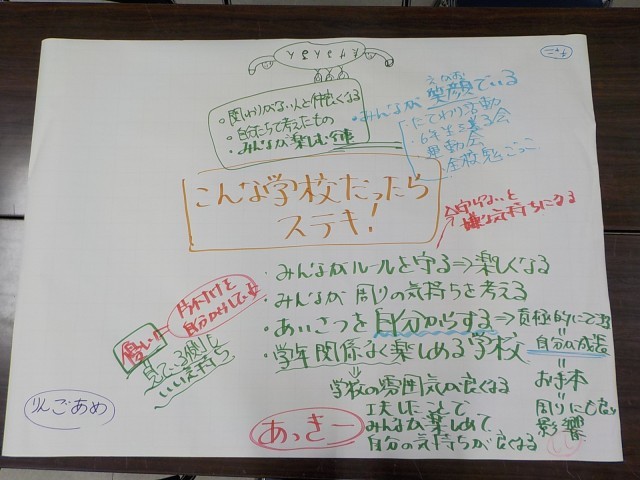 ・関わりがない人と仲良くなる
・自分たちで考えたもの
・みんなが楽しむ
・みんなが笑顔でいる
えがお
・たてわり活動
・6年生を送る会
運動会
全校鬼ごっこ
こんな学校だったら
ステキ!
守らないと
嫌な気持ちになる
・みんながルールを守る⇒楽しくなる
・みんなが周りの気持ちを考える
・あいさつを自分からする⇒積極的にできる
=
自分の成長
=
お手本
=
周りにも良い
影響
・学年関係なく楽しめる学校
学校の雰囲気が良くなる
工夫したことで
みんなが楽しめて
自分の気持ちが良くなる
見ている側も
いい気持ち
りんごあめ
あっきー